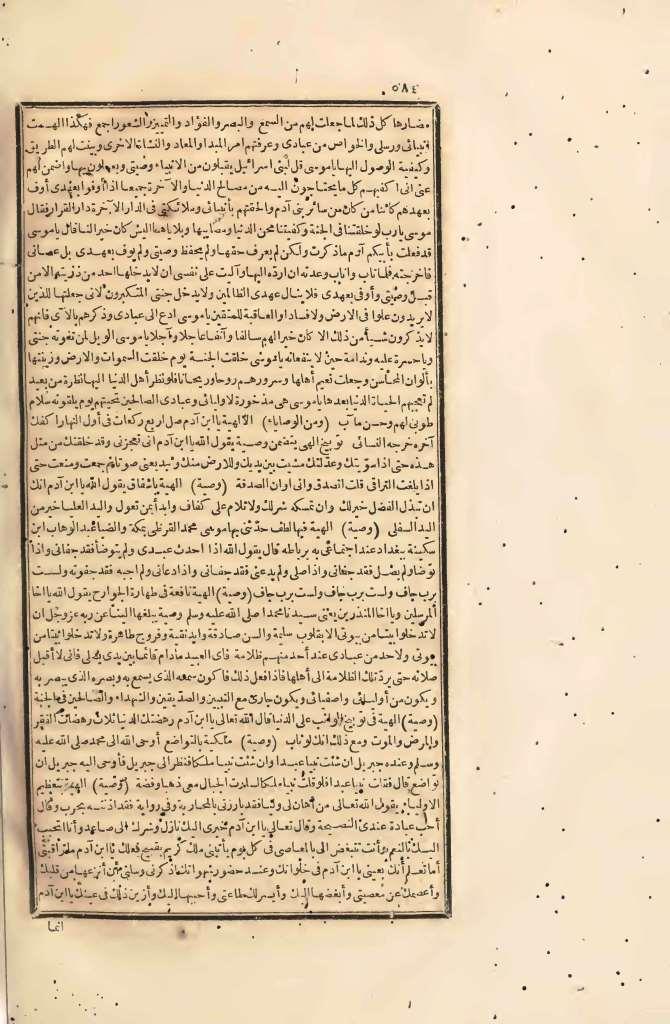 ٥٨٤
مضارها كل ذلك لما جعلت لهم من السمع والبصر والفؤاد والتمييز والشعور اجمع فهكذا الهمت
أنبيائى ورسلى والخواص من عبادى وعرفتهم أمر المبدا والمعاد والنشأة الاخرى وبينت لهم الطريق
وكيفية الوصول اليها ياموسى قل لبنى اسرائيل يقبلون من الانبياء وصيتى ويعملون بها واضمن لهم
عنى انى اكفيهم كل ما يحتاجون اليه من مصالح الدنيا والآخرة جميعا اذا أوفوا بعهدى أوف
بعهدهم كائنا من كان من سائر بنى آدم والحقتهم بأنبيائى وملائكتى فى الدار الآخرة دار القرار فقال
موسى يارب لو خلقتنا فى الجنة وكفيتنا محن الدنيا ومصايبها وبلاياها أليس كان خير النا قال ياموسى
قد فعلت بأبيكم آدم ما ذكرت ولكن لم يعرف حقها ولم يحفظ وصيتى ولم يوف بعهدى بل عصانى
فاخرجته فلما تاب وأناب وعدته ان ارده اليها وآليت على نفسى ان لا يدخلها احد من ذريته الا من
قبل وصيتى وأوفى بعهدى فلا ينال عهدى الظالمين ولا يدخل جنتى المتكبرون لانى جعلتها للذين
لا يريدون علوا فى الارض ولا فسادا والعاقبة للمتقين ياموسى ادع الى عبادى وذكرهم بالآئى فانهم
لا يذكرون شيأ من ذلك الا كان خيرا لهم سالفا وآنفا عاجلا وآجلا ياموسى الويل لمن تفوته جنتى
وياحسرة عليه وندامة حين لا ينفعانه ياموسى خلقت الجنة يوم خلقت السموات والارض وزينتها
بألوان المحاسن وجعلت نعيم أهلها وسرورهم روحا وريحانا فلو نظر أهل الدنيا اليها نظرة من بعيد
لم تعجبهم الحياة الدنيا بعدها ياموسى هى مذخورة لاوليائى وعبادى الصالحين تحيتهم يوم يلقونه سلام
طوبى لهم وحسن مآب (ومن الوصايا) الالهية يا ابن آدم صل اربع ركعات فى أول النهار اكفك
آخره خرجه النسائى توبيخ الهى يتضمن وصية يقول الله يا ابن آدم انى تعجزنى وقد خلقتك من مثل
هذه حتى اذا سويتك وعدلتك مشيت بين بردين وللارض منك وئيد يعنى صوتا ثم جمعت ومنعت حتى
اذا بلغت التراقى قلت اتصدق وانى اوان الصدقة (وصية) الهية باشفاق يقول الله يا ابن آدم انك
ان تبذل الفضل خير لك وان تمسكه شر لك ولا تلام على كفاف وابدأ بمن تعول واليد العليا خير من
اليد السفلى (وصية) الهية فيها لطف حدثنى بها موسى محمد القرظى بمكة والضيا عبد الوهاب ابن
سكينة ببغداد عند اجتماعى به برباطه قال يقول الله اذا احدث عبدى ولم يتوضأ فقد جفانى واذا
توضأ ولم يصل فقد جفانى واذا صلى ولم يدعنى فقد جفانى واذا دعانى ولم اجبه فقد جفوته ولست
برب جاف ولست برب جاف ولست برب جاف (وصية) الهية نافعة فى طهارة الجوارح يقول الله يا اخا
المرسلين ويا اخا المنذرين يعنى سيدنا محمدا صلى الله عليه وسلم وصية يبلغها الينا عن ربه عز وجل ان
لا تدخلوا بيتا من بيوتى الا بقلوب سليمة والسن صادقة وايد نقية وفروج طاهرة ولا تدخلوا بيتا من
بيوتى ولاحد من عبادى عند أحد منهم ظلامة فانى العنه مادام قائما بين يدى يصلى فانى لا أقبل
صلاته حتى يرد تلك الظلامة الى أهلها فاذا فعل ذلك فأكون سمعه الذى يسمع به وبصره الذى يبصر به
ويكون من أوليائى واصفيائى ويكون جارى مع النبيين والصديقين والشهداء والصالحين فى الجنة
(وصية) الهية فى توبيخ الحريص على الدنيا قال الله تعالى يا ابن آدم رهصتك الدنيا ثلاث رهصات الفقر
والمرض والموت ومع ذلك انك لوثاب (وصية) ملكية بالتواضع أوحى الله الى محمد صلى الله عليه
وسلم وعنده جبريل ان شئت نبيا عبدا وان شئت نبيا ملكا فنظر الى جبريل فأوحى اليه جبريل ان
تواضع قال فقلت نبيا عبدا فلو قلت نبيا ملكا لسارت الجبال معى ذهبا وفضة (وصية) الهية بتعظيم
الاولياء يقول الله تعالى من أهان لى وليا فقد بارزنى بالمحاربة وفى رواية فقد اذنته بحرب وقال
أحب عبادة عندى النصيحة وقال تعالى يا ابن آدم خيرى اليك نازل وشرك الى صاعد وأنا اتحبب
اليك بالنعم وأنت تتبغض الى بالمعاصى فى كل يوم يأتينى ملك كريم بقبيح فعلك يا ابن آدم ما تراقبنى
أما تعلم أنك بعينى يا ابن آدم فى خلواتك وعند حضور شهواتك اذكرنى وسلنى ان أنزعها من قلبك
وأعصمك عن معصيتى وأبغضها اليك وأيسر لك طاعتى وأحببها اليك وأزين ذلك فى عينك يا ابن آدم
انما